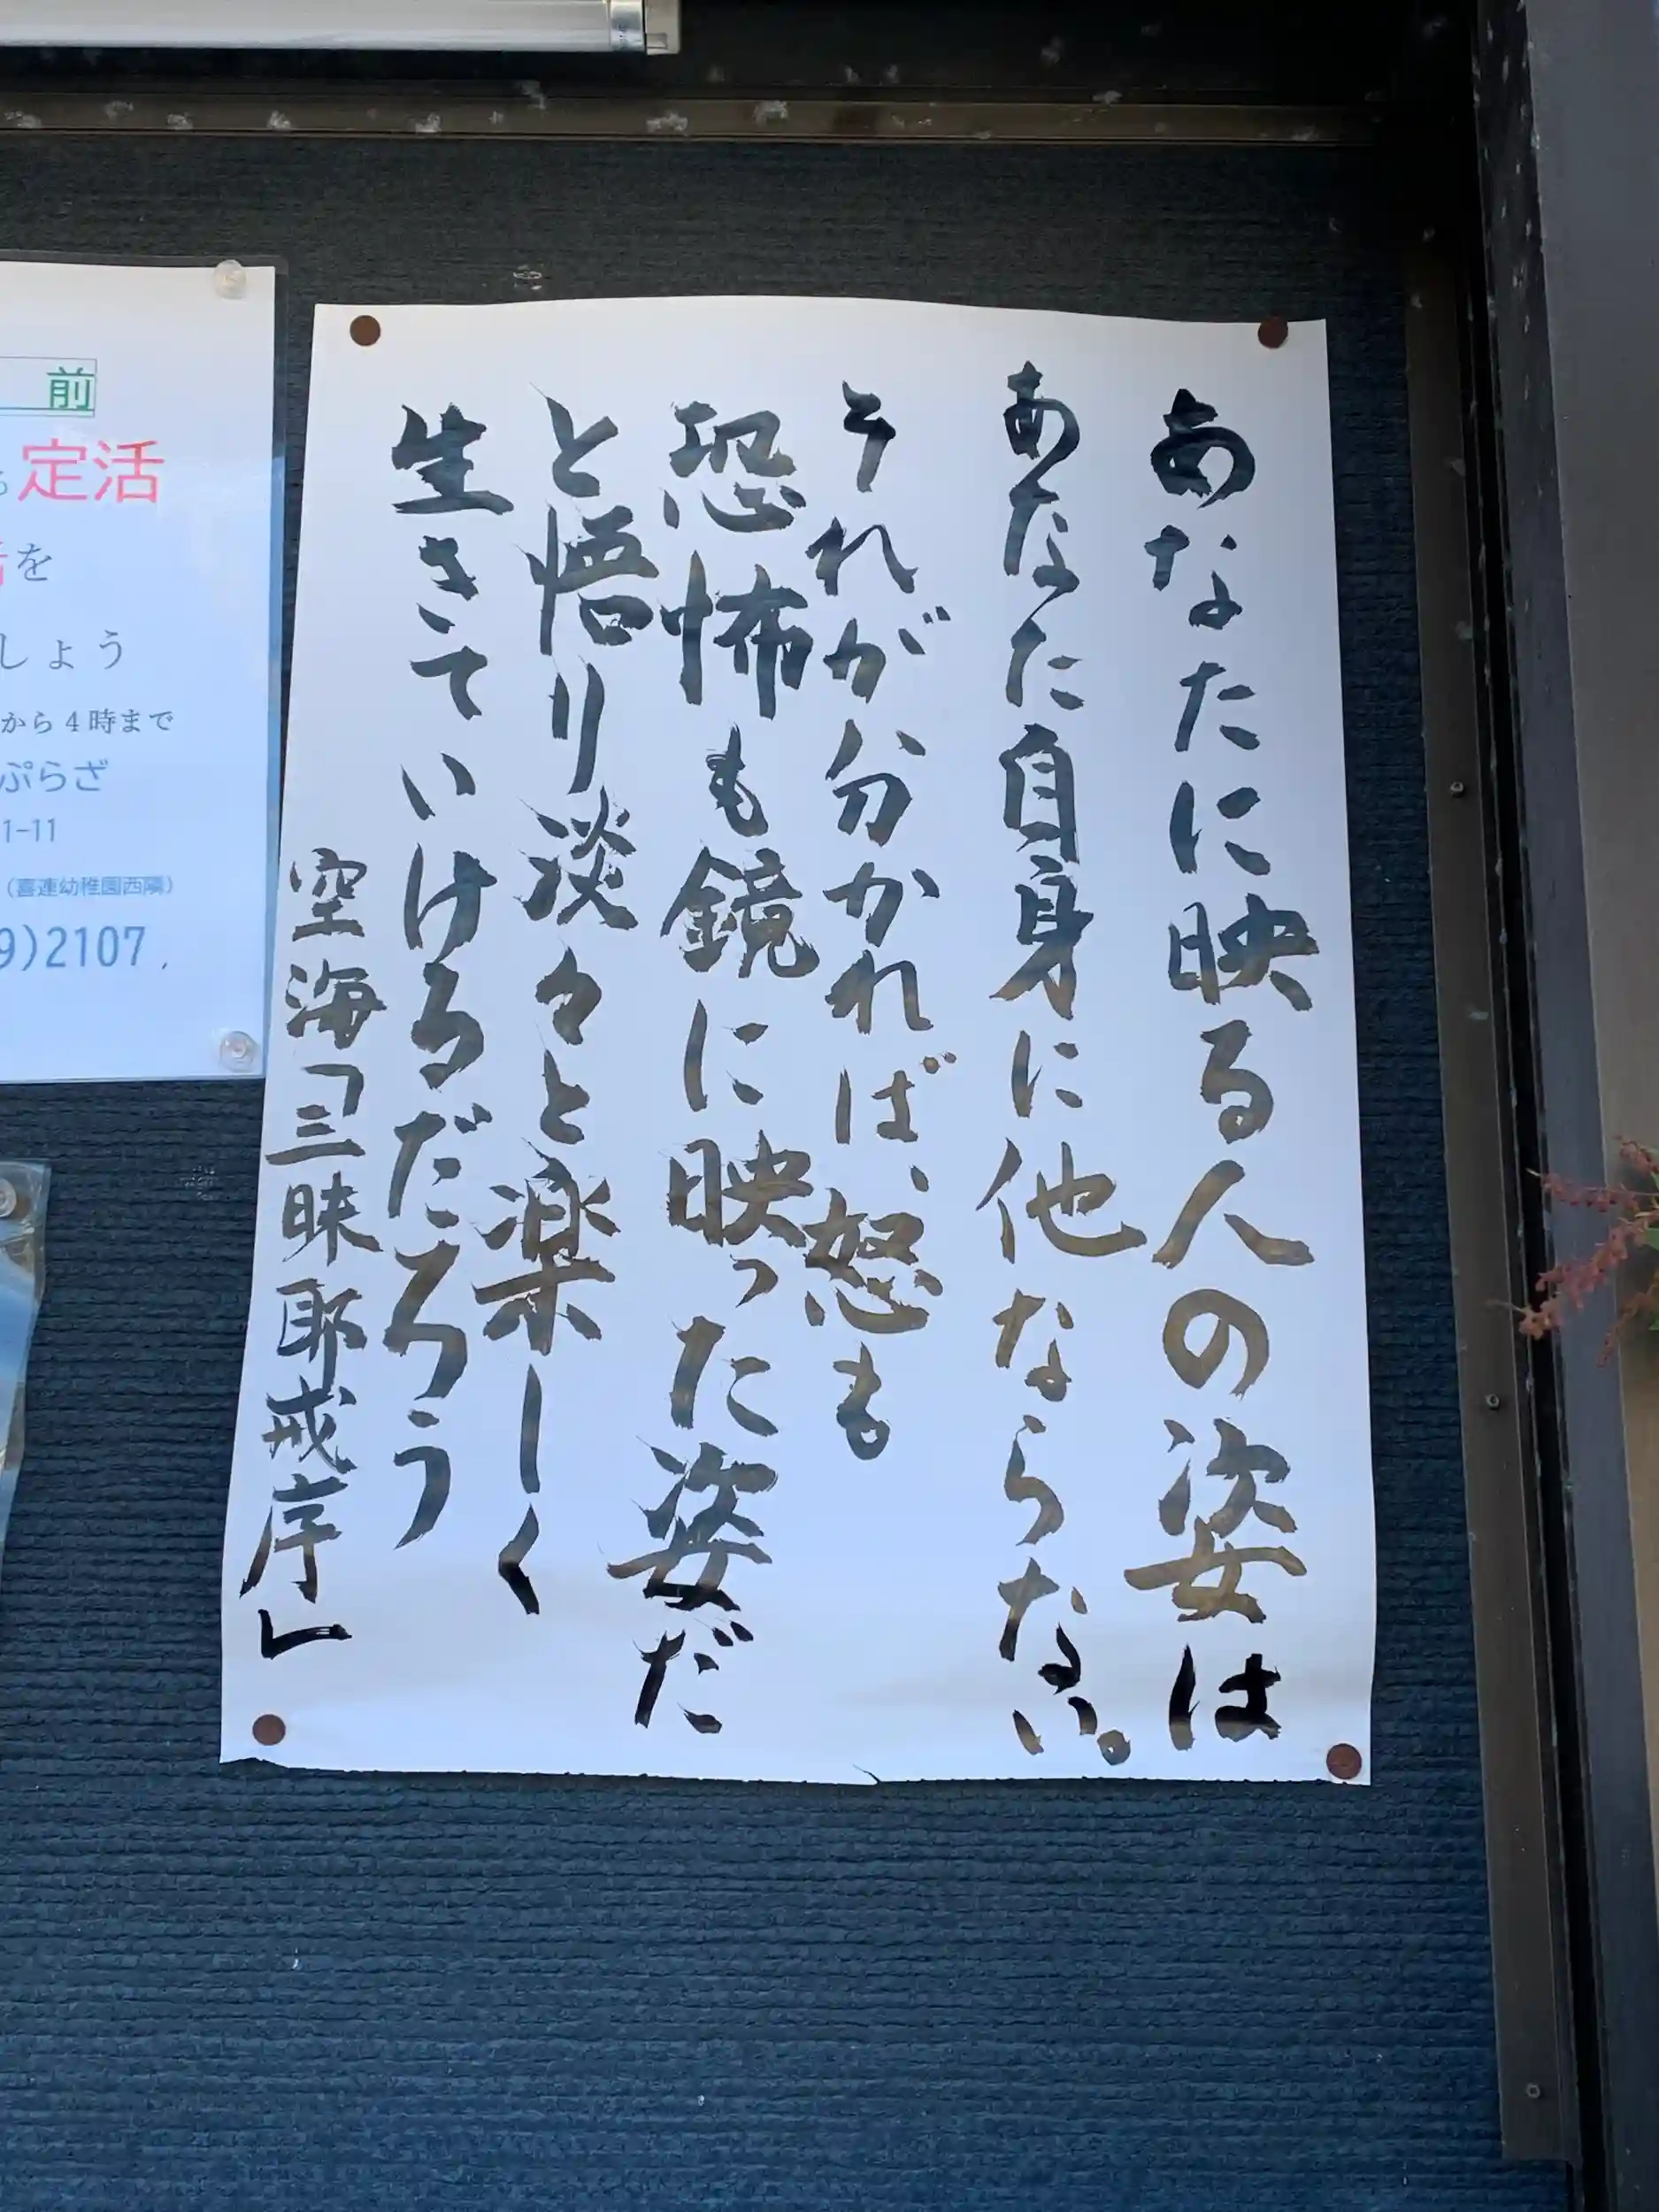 あなたに映る人の姿は
あなた自身に他ならない。
それが分かれば、怒も
恐怖も鏡に映った姿だ
と悟り淡々と楽しく
生きていけるだろう
空海「三昧耶戒序」
前
定活
を
しょう
から4時まで
ぷらざ
1-11
(喜連幼稚園西隣)
9)2107